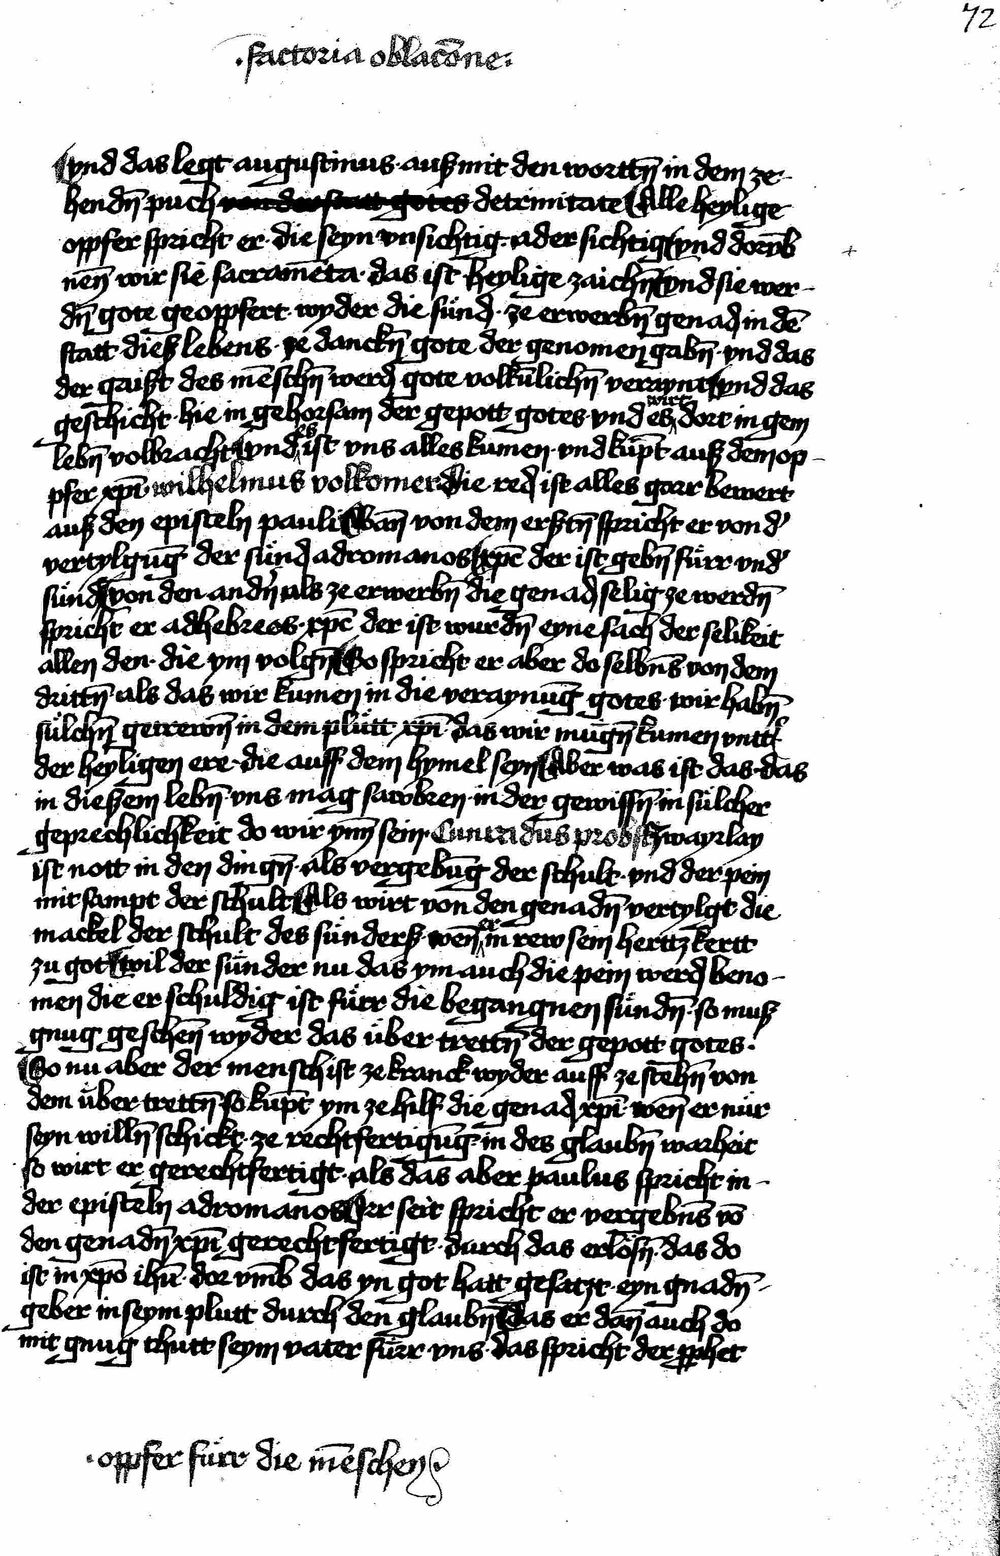 72
·factoria oblacōne:
vnd das legt augustinus· auß mit den wortt̄n in dem ze-
hendn̄ puch von der statt gotes detrinitate Alle heylige
oppfer spricht er· die seyn vnsichtig· ader sichtig vnd dorūb
nen̄ wir sie sacramēta· das ist heylige zaichn̄ vnd sie wer-
dn̄ gote geopfert· wyder die sünd· ze erwerbn̄ genad in dē
statt dieß lebens· ze danckn̄ gote der genomen gabn̄· vnd das
der gaißt des mēschn̄ werd gote volkūlichn̄ veraynt vnd das
geschicht· hie in gehorsam der gepott gotes· vnd es wirt dort in gem
lebn̄ volbracht vnd es ist vns alles kumen· vnd kūpt auß dem op-
pfer xp̄i· wilhelmus volkomer die red ist alles gorr bewert
auß den episteln pauli Wan̄ von dem erßtn̄ spricht er von d'
vertylgūg der sünd adromanos xp̄c der ist gebn̄ fürr vnd'
sünd von den andn̄ als ze erwerbn̄ die genad selig ze werdn̄
spricht er adhebreos· xp̄c der ist wurdn̄ eyne sach der selikeit
allen den· die ym volgn̄ So spricht er aber do selbns̄ von dem
drittn̄ als das wir kumen in die veraynūg gotes· wir habn̄
sülchn̄ getrewn̄ in dem plütt xp̄i· das wir mügn̄ kumen vntt'
der heyligen ere· die auff dem hymel seyn Aber was ist das· das
in dießem lebn̄ vns mag sawbren· in der gewissn̄ in sülcher
geprechlichkeit do wir yn̄n sein· Cunradus probst zwayrlay
ist nott in den dingn̄· als vergebūg der schult· vnd der pein
mit sampt der schult Als wirt von den genadn̄ vertylgt die
mackel der schult des sünderß wen̄ er in rew sein herttz kertt
zu got wil der sünder nu das ym auch die pein werd beno-
men die er schuldig ist fürr die begangnen sündn̄· so muß
gnug geschen̄ wyder das über trettn̄ der gepott gotes·
So nu aber der mensch ist ze kranck wyder auff ze stehn̄ von
dem über trettn̄ so kūpt ym ze hilf die genad xp̄i· wen̄ er nür
seyn willn̄ schickt· ze rechtfertigūg· in des glaubn̄ warheit
so wirt er gerechtfertigt· als das aber paulus spricht in-
der episteln adromanos Irr seit spricht er vergebns̄ vō
den genadn̄ xp̄i gerechtfertigt· durch das erlösn̄· das do
ist in xp̄o ihū· dor vm̄b das yn got hatt gesatzt· eyn gnadn̄-
geber in seym plutt durch den glaubn̄ das er dan̄ auch do
mit gnug thutt seym vater fürr vns· das spricht der pphet
·oppfer fürr die mēschen